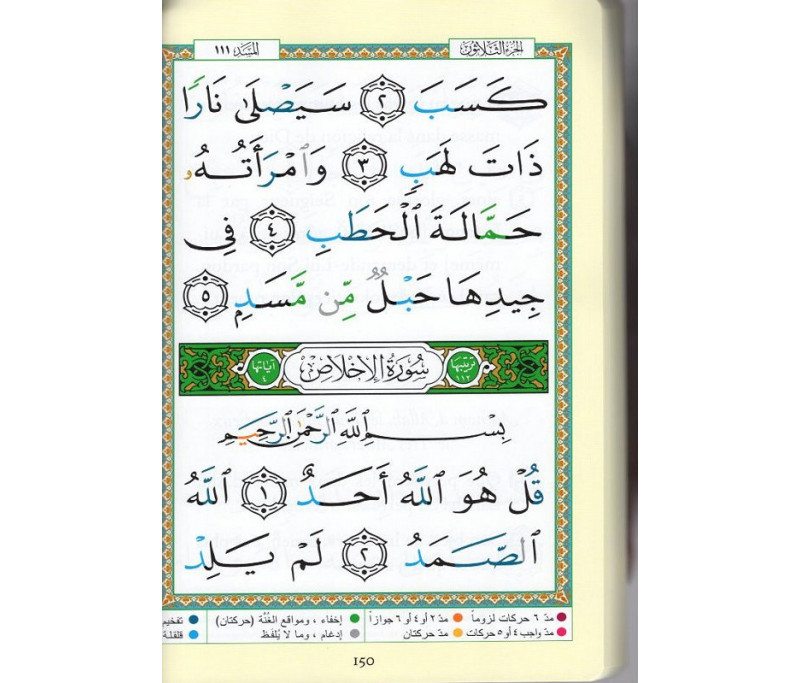 الجزء الثلاثون المسد ١١١
كَسَبَ ٢ سَيَصْلَىٰ نَارًا
ذَاتَ لَهَبٍ ٣ وَٱمْرَأَتُهُۥ
حَمَّالَةَ ٱلْحَطَبِ ٤ فِى
جِيدِهَا حَبْلٌ مِّن مَّسَدٍۭ ٥
ترتيبها ١١٢ سُورَةُ الإِخْلَاصِ آياتها ٤
بِسْمِ ٱللَّهِ ٱلرَّحْمَٰنِ ٱلرَّحِيمِ
قُلْ هُوَ ٱللَّهُ أَحَدٌ ١ ٱللَّهُ
ٱلصَّمَدُ ٢ لَمْ يَلِدْ
مدّ ٦ حركات لزوماً مدّ ٢ أو ٤ أو ٦ جوازاً إخفاء ، ومواقع الغُنَّة (حركتان) تفخيم
مدّ واجب ٤ أو ٥ حركات مدّ حركتان إدغام ، وما لا يُلفَظ قلقلة
150